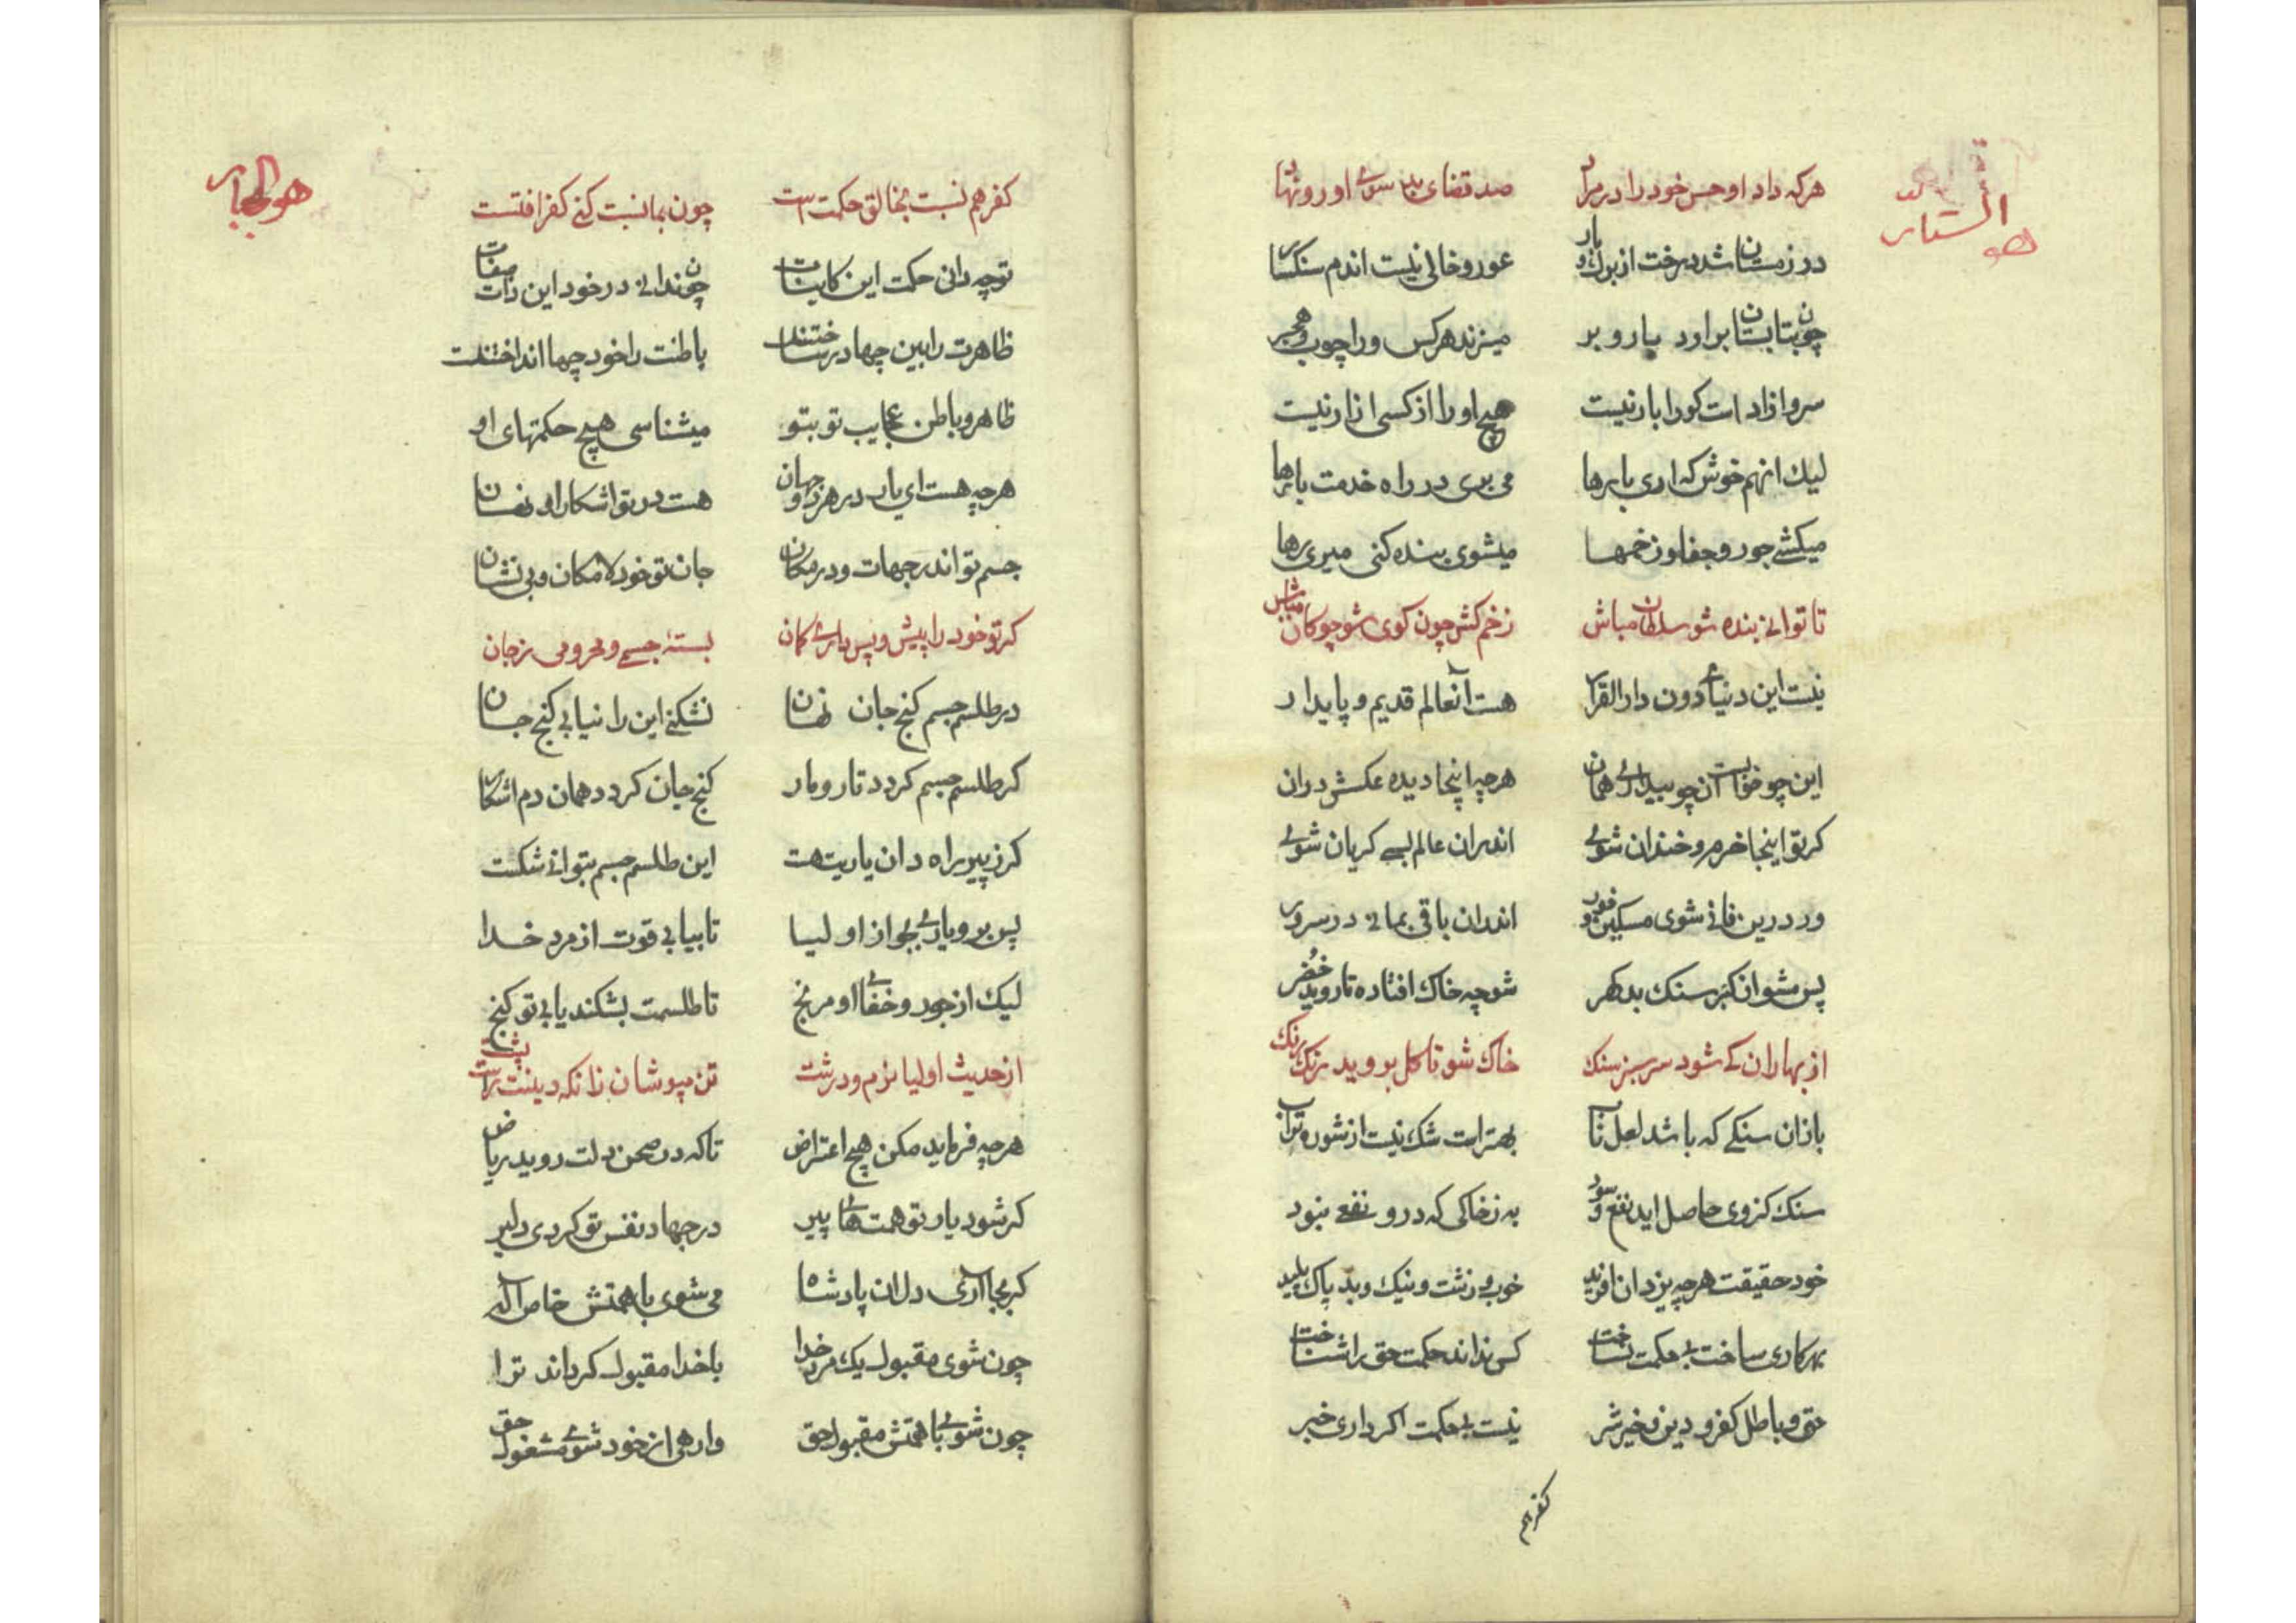 هو الستار
هرکه داد او حسن خود را در مراد صد قضای بد سوی او رو نهاد
در زمستان شد درخت از برک و بار عور و خالی نیست اندم سنکسار
چون بتابستان براورد بار و بر میزند هرکس ورا چوب و حجر
سرو ازاد است کورا بار نیست هیچ او را از کسی ازار نیست
لیك انهم خوش که اری بارها می بری در راه خدمت بارها
میکشی جور و جفا و زخمها میشوی بنده کنی میری رها
تا توانی بنده شو سلطان مباش زخم کش چون کوی شو چوکان مباش
نیست این دنیای دون دار القرار هست آنعالم قدیم و پایدار
این چو خوابست آن چو بیداری همان هرچه اینجا دیده عکسش دران
کر تو اینجا خرم و خندان شوی اندران عالم بسی کریان شوی
ور درین فانی شوی مسکین و اندران باقی بمانی در سرور
پس مشو از کبر سنک بد کهر شو چه خاك افتاده تا روید خضر
از بهاران کی شود سرسبز سنك خاك شو تا کل بروید رنك رنك
باز ان سنکی که باشد لعل ناب بهتر است شك نیست از شوره تراب
سنك کزوی حاصل اید نفع و سود به ز خاکی که درو نفعی نبود
خود حقیقت هرچه یزدان افرید خوب و زشت و نیك و بد پاك پلید
هرکاری ساخت بی حکمت نساخت کس نداند حکمت حق را شناخت
حق و باطل کفر و دین و خیر شر نیست بی حکمت اکر داری خبر
کفر هم
هو الجبار
کفر هم نسبت بخالق حکمت است چون بما نسبت کنی کفر افتست
تو چه دانی حکمت این کاینات چون ندانی در خود این ذات صفات
ظاهرت را بین چها در ساختند باطنت را خود چها انداختند
ظاهر و باطن عجایب تو بتو میشناسی هیچ حکمتهای او
هرچه هست ای یار در هر دو جهان هست در تو اشکارا و نهان
جسم تو اندر جهات و در مکان جان تو خود لا مکان و بی نشان
کر تو خود را پیش و پس داری کمان بستهٔ جسمی و محرومی ز جان
در طلسم جسم کنج جان نهان نشکنی این را نیابی کنج جان
کر طلسم جسم کردد تار و مار کنج جان کردد همان دم اشکار
کر ز پیر راه دان یاریت هست این طلسم جسم بتوانی شکست
پس برو یاری بجو از اولیا تا بیابی قوت از مرد خدا
لیك از جور و خفای او مرنج تا طلسمت بشکند یابی تو کنج
از حدیث اولیا نرم و درشت تن مپوشان زانکه دینت راست پشت
هرچه فرماید مکن هیچ اعتراض تا که در صحن دلت روید ریاض
کر شود یاور تو همت های پیر در جهاد نفس تو کردی دلیر
کر بجا آری دل ان پادشاه می شوی با همتش خاص اله
چون شوی مقبول یك مرد خدا با خدا مقبول کرداند ترا
چون شوی با همتش مقبول حق وارهی از خود شوی مشغول حق